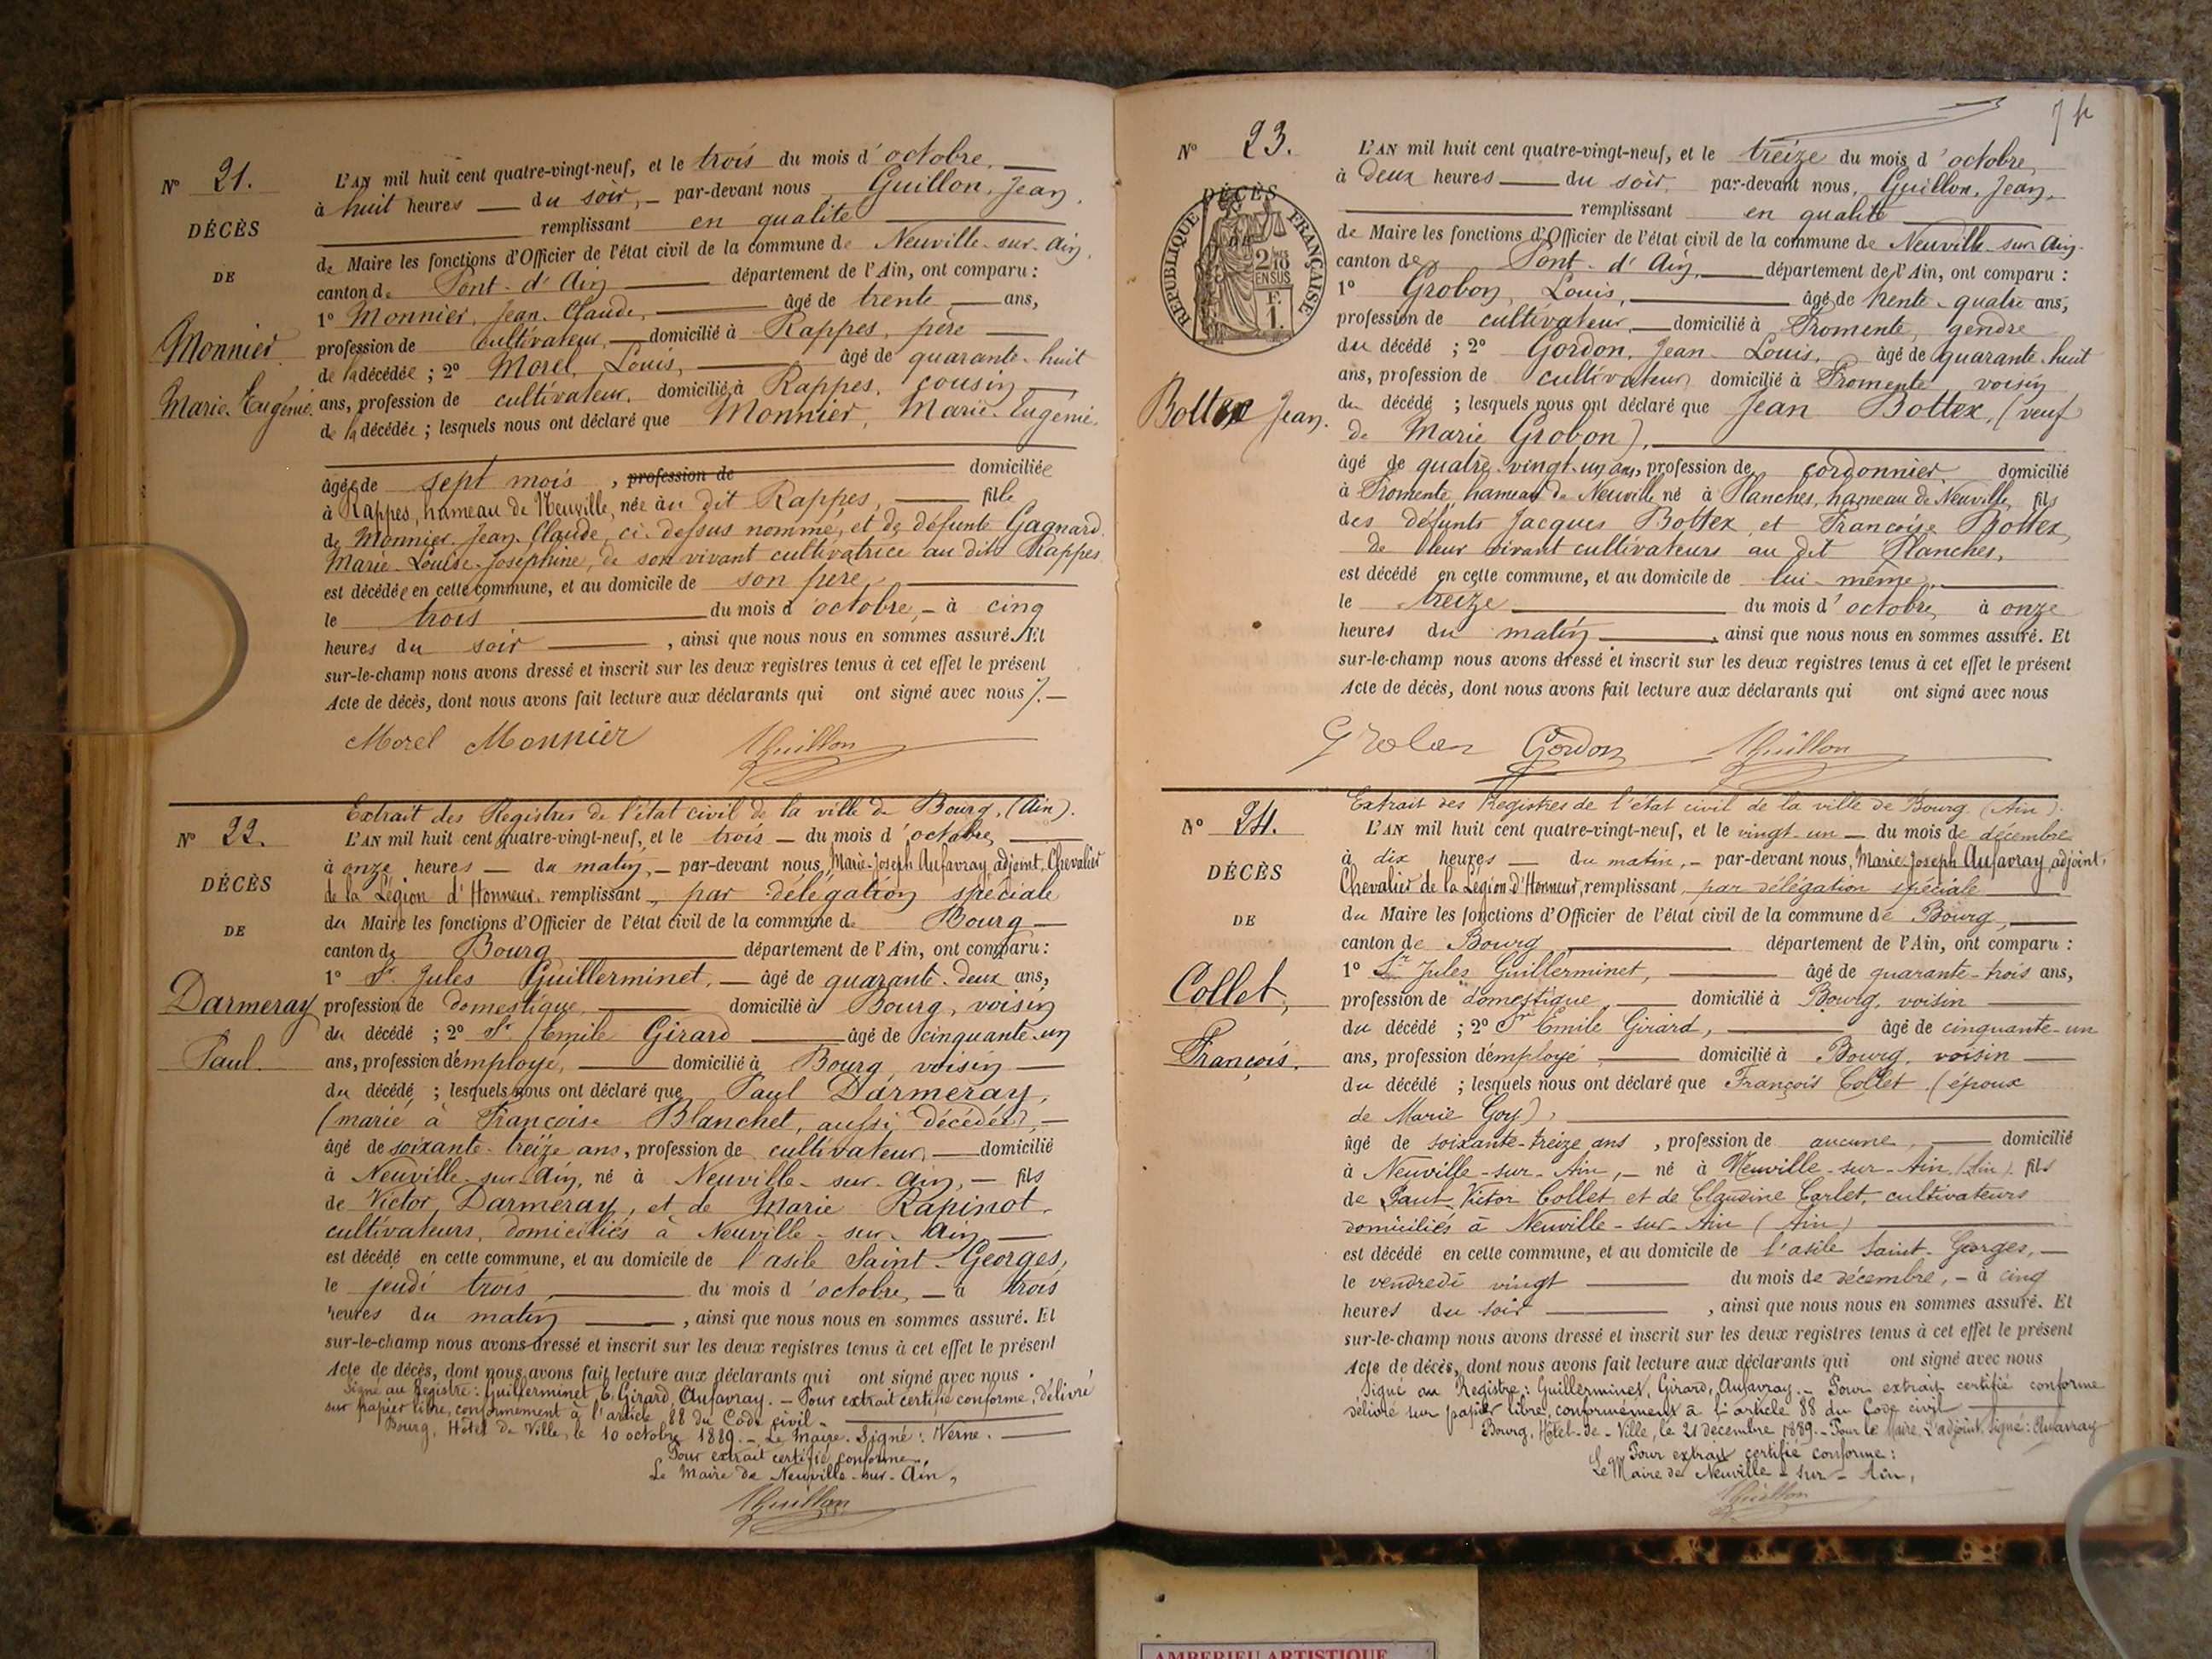 N° 21.
DÉCÈS
DE
Monnier
Marie-Eugénie.
L'AN mil huit cent quatre-vingt-neuf, et le trois du mois d'octobre,
à huit heures du soir, par-devant nous Guillon, Jean,
remplissant en qualité
de Maire les fonctions d'Officier de l'état civil de la commune de Neuville-sur-Ain,
canton de Pont-d'Ain département de l'Ain, ont comparu :
1° Monnier, Jean-Claude, âgé de trente ans,
profession de cultivateur, domicilié à Rappes, père
de la décédée ; 2° Morel, Louis, âgé de quarante-huit
ans, profession de cultivateur, domicilié à Rappes, cousin
de la décédée ; lesquels nous ont déclaré que Monnier, Marie-Eugénie,
âgée de sept mois, profession de domiciliée
à Rappes, hameau de Neuville, née au dit Rappes, fille
de Monnier, Jean-Claude, ci-dessus nommé, et de défunte Gagnard
Marie-Louise-Joséphine, de son vivant cultivatrice au dit Rappes
est décédée en cette commune, et au domicile de son père,
le trois du mois d'octobre, à cinq
heures du soir, ainsi que nous nous en sommes assuré. Et
sur-le-champ nous avons dressé et inscrit sur les deux registres tenus à cet effet le présent
Acte de décès, dont nous avons fait lecture aux déclarants qui ont signé avec nous.
Morel Monnier JGuillon
Extrait des Registres de l'état civil de la ville de Bourg, (Ain).
N° 22.
DÉCÈS
DE
Darmeray
Paul.
L'AN mil huit cent quatre-vingt-neuf, et le trois du mois d'octobre,
à onze heures du matin, par-devant nous, Marie-Joseph Aufavray, adjoint, Chevalier
de la Légion d'Honneur, remplissant, par délégation spéciale
du Maire les fonctions d'Officier de l'état civil de la commune de Bourg
canton de Bourg département de l'Ain, ont comparu :
1° Sr. Jules Guillerminet, âgé de quarante-deux ans,
profession de domestique, domicilié à Bourg, voisin
du décédé ; 2° Sr. Emile Girard âgé de cinquante-un
ans, profession d'employé, domicilié à Bourg, voisin
du décédé ; lesquels nous ont déclaré que Paul Darmeray,
(marié à Françoise Blanchet, aussi décédée),
âgé de soixante-treize ans, profession de cultivateur, domicilié
à Neuville-sur-Ain, né à Neuville-sur-Ain, fils
de Victor Darmeray, et de Marie Rapinot,
cultivateurs, domiciliés à Neuville-sur-Ain
est décédé en cette commune, et au domicile de l'asile Saint-Georges,
le jeudi trois du mois d'octobre, à trois
heures du matin, ainsi que nous nous en sommes assuré. Et
sur-le-champ nous avons dressé et inscrit sur les deux registres tenus à cet effet le présent
Acte de décès, dont nous avons fait lecture aux déclarants qui ont signé avec nous.
Signé au Registre : Guillerminet, E. Girard, Aufavray. - Pour extrait certifié conforme, délivré
sur papier libre, conformément à l'article 88 du Code civil -
Bourg, Hôtel de Ville, le 10 octobre 1889. - Le Maire. Signé : Verne.
Pour extrait certifié conforme,
Le Maire de Neuville-sur-Ain,
JGuillon
N° 23.
RÉPUBLIQUE FRANÇAISE
DÉCÈS
Bottex Jean.
L'AN mil huit cent quatre-vingt-neuf, et le treize du mois d'octobre,
à deux heures du soir, par-devant nous, Guillon, Jean,
remplissant en qualité
de Maire les fonctions d'Officier de l'état civil de la commune de Neuville-sur-Ain,
canton de Pont-d'Ain, département de l'Ain, ont comparu :
1° Grobon, Louis, âgé de trente-quatre ans,
profession de cultivateur, domicilié à Fromente, gendre
du décédé ; 2° Gordon, Jean-Louis, âgé de quarante-huit
ans, profession de cultivateur domicilié à Fromente, voisin
du décédé ; lesquels nous ont déclaré que Jean Bottex, (veuf
de Marie Grobon),
âgé de quatre-vingt-un ans, profession de cordonnier, domicilié
à Fromente, hameau de Neuville né à Planches, hameau de Neuville, fils
des défunts Jacques Bottex, et Françoise Bottex,
de leur vivant cultivateurs au dit Planches,
est décédé en cette commune, et au domicile de lui-même,
le treize du mois d'octobre, à onze
heures du matin, ainsi que nous nous en sommes assuré. Et
sur-le-champ nous avons dressé et inscrit sur les deux registres tenus à cet effet le présent
Acte de décès, dont nous avons fait lecture aux déclarants qui ont signé avec nous
Gordon JGuillon
Extrait des Registres de l'état civil de la ville de Bourg (Ain).
N° 24.
DÉCÈS
DE
Collet,
François.
L'AN mil huit cent quatre-vingt-neuf, et le vingt-un du mois de décembre
à dix heures du matin, par-devant nous, Marie-Joseph Aufavray, adjoint,
Chevalier de la Légion d'Honneur, remplissant, par délégation spéciale
du Maire les fonctions d'Officier de l'état civil de la commune de Bourg,
canton de Bourg, département de l'Ain, ont comparu :
1° Sr Jules Guillerminet, âgé de quarante-trois ans,
profession de domestique, domicilié à Bourg, voisin
du décédé ; 2° Sr Emile Girard, âgé de cinquante-un
ans, profession d'employé domicilié à Bourg, voisin
du décédé ; lesquels nous ont déclaré que François Collet (époux
de Marie Goy),
âgé de soixante-treize ans, profession de aucune, domicilié
à Neuville-sur-Ain, né à Neuville-sur-Ain (Ain) fils
de Victor Collet et de Claudine Carlet, cultivateurs
domiciliés à Neuville-sur-Ain (Ain)
est décédé en cette commune, et au domicile de l'asile Saint-Georges,
le vendredi vingt du mois de décembre, à cinq
heures du soir, ainsi que nous nous en sommes assuré. Et
sur-le-champ nous avons dressé et inscrit sur les deux registres tenus à cet effet le présent
Acte de décès, dont nous avons fait lecture aux déclarants qui ont signé avec nous
Signé au Registre : Guillerminet, Girard, Aufavray. - Pour extrait certifié conforme
délivré sur papier libre, conformément à l'article 88 du Code civil
Bourg, Hôtel-de-Ville, le 21 décembre 1889. - Pour le Maire, L'adjoint. Signé : Aufavray
Pour extrait certifié conforme :
Le Maire de Neuville-sur-Ain,
JGuillon
AMBERIEU ARTISTIQUE